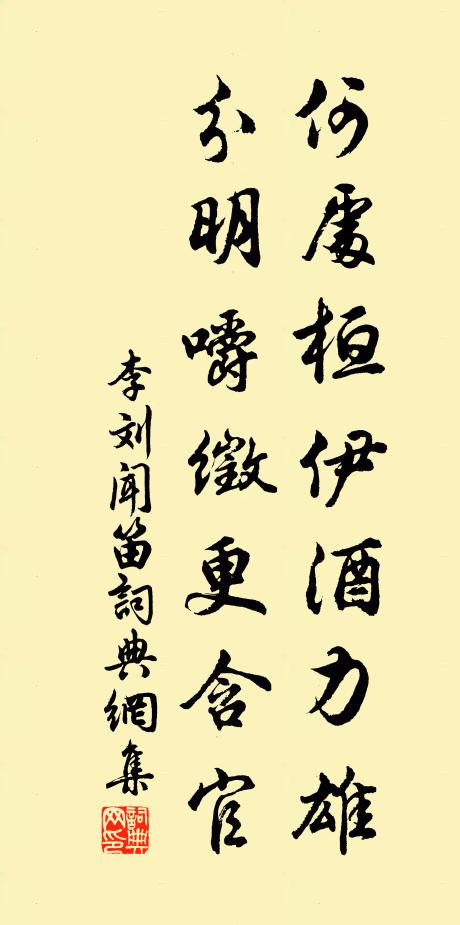 何處桓伊酒力雄
分明嚼徵更含宮
李刘聞笛詞典網集
詞典
网印